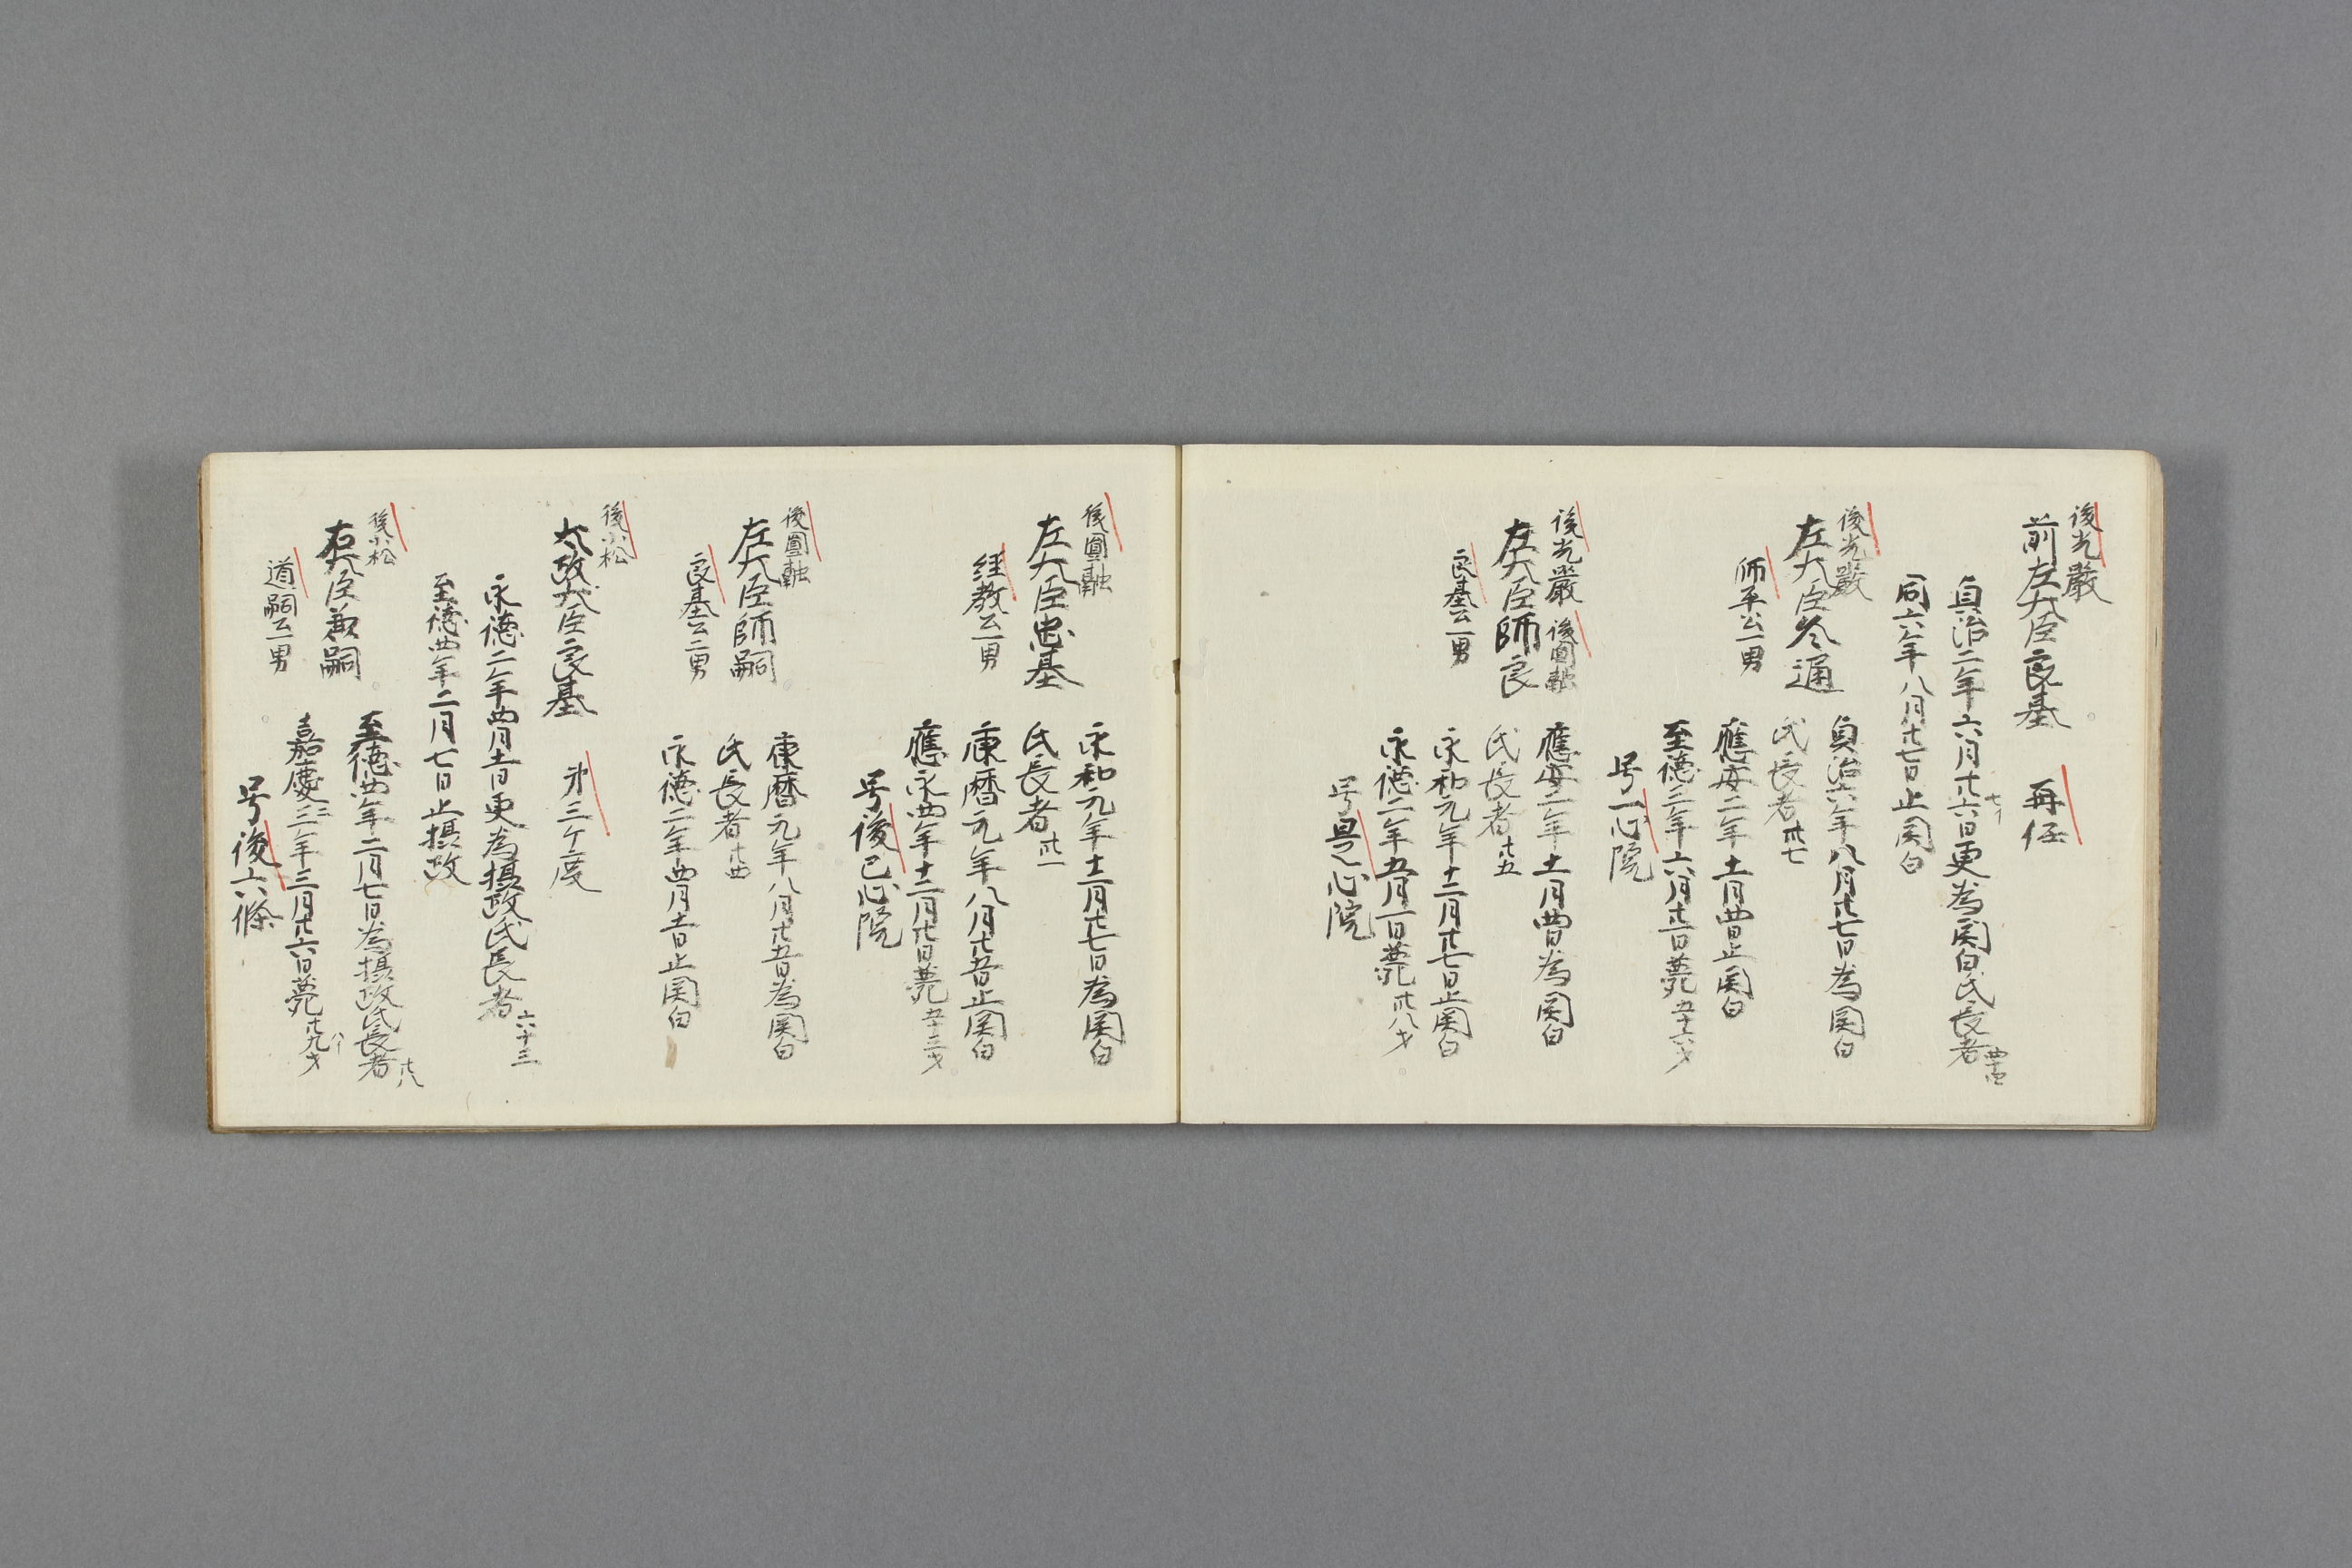 後光嚴
前左大臣良基　再任
貞治二年六月廿六日更為関白氏長者
七イ
同六年八月廿七日止関白
後光嚴
左大臣冬通
師平公一男
貞治六年八月廿七日為関白
氏長者卅七
應安二年十一月四日止関白
至德三年六月廿一日薨五十六才
号一心院
後光嚴　後圓融
左大臣師良
良基公一男
應安二年十一月四日為関白
氏長者廿五
永和元年十二月廿七日止関白
永德二年五月一日薨卅八才
号是心院
後圓融
左大臣忠基
経教公一男
永和元年十二月廿七日為関白
氏長者卅一
康暦元年八月廿五日止関白
應永四年十二月廿日薨五十三才
号後己心院
後圓融
左大臣師嗣
良基公二男
康暦元年八月廿五日為関白
氏長者廿四
永德二年四月十一日止関白
後小松
太政大臣良基　第三ケ度
永德二年四月十一日更為摂政氏長者六十三
至德四年二月七日止摂政
後小松
右大臣兼嗣
道嗣公一男
至德四年二月七日為摂政氏長者廿八
嘉慶二年三月廿六日薨廿九才
八イ
号後六條